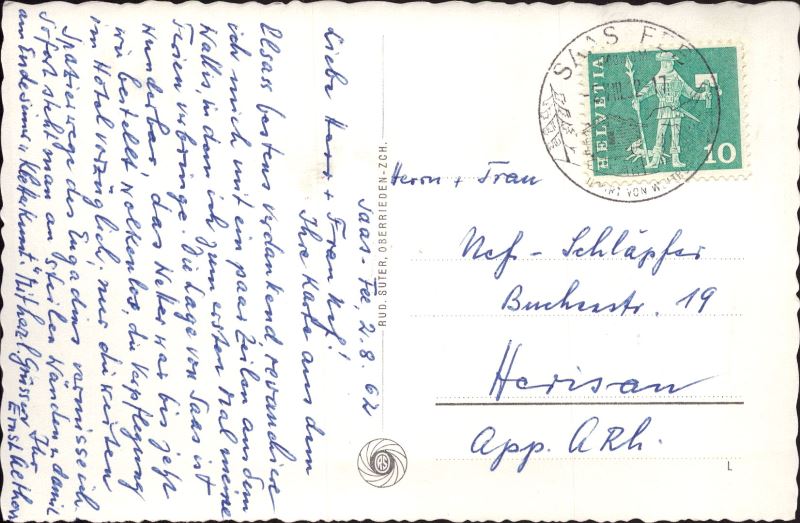 Saas-Fee, 2.8.62
Liebe Herr. + Frau Nef!
Ihre Karte aus dem
Elsass bestens verdankend revanchiere
ich mich mit ein paar Zeilen aus dem
Wallis, in dem ich zum ersten Mal meine
Ferien verbringe. Die Lage von Saas ist
wunderbar, das Wetter war bis jetzt
wie bestellt, wolkenlos, die Verpflegung
im Hotel vorzüglich; nur die weiten
Spazierwege des Engadins vermisse ich.
Sofort steht man an steilen Wänden u. damit
am Ende seiner "Kletterkunst". Mit herzl. Grüssen Ihr
Ernst
RUD. SUTER, OBERRIEDEN-ZCH.
SAAS FEE
HELVETIA
10
Herrn + Frau
Nef-Schläpfer
Buchenstr. 19
Herisau
App. A.Rh.
RS
L